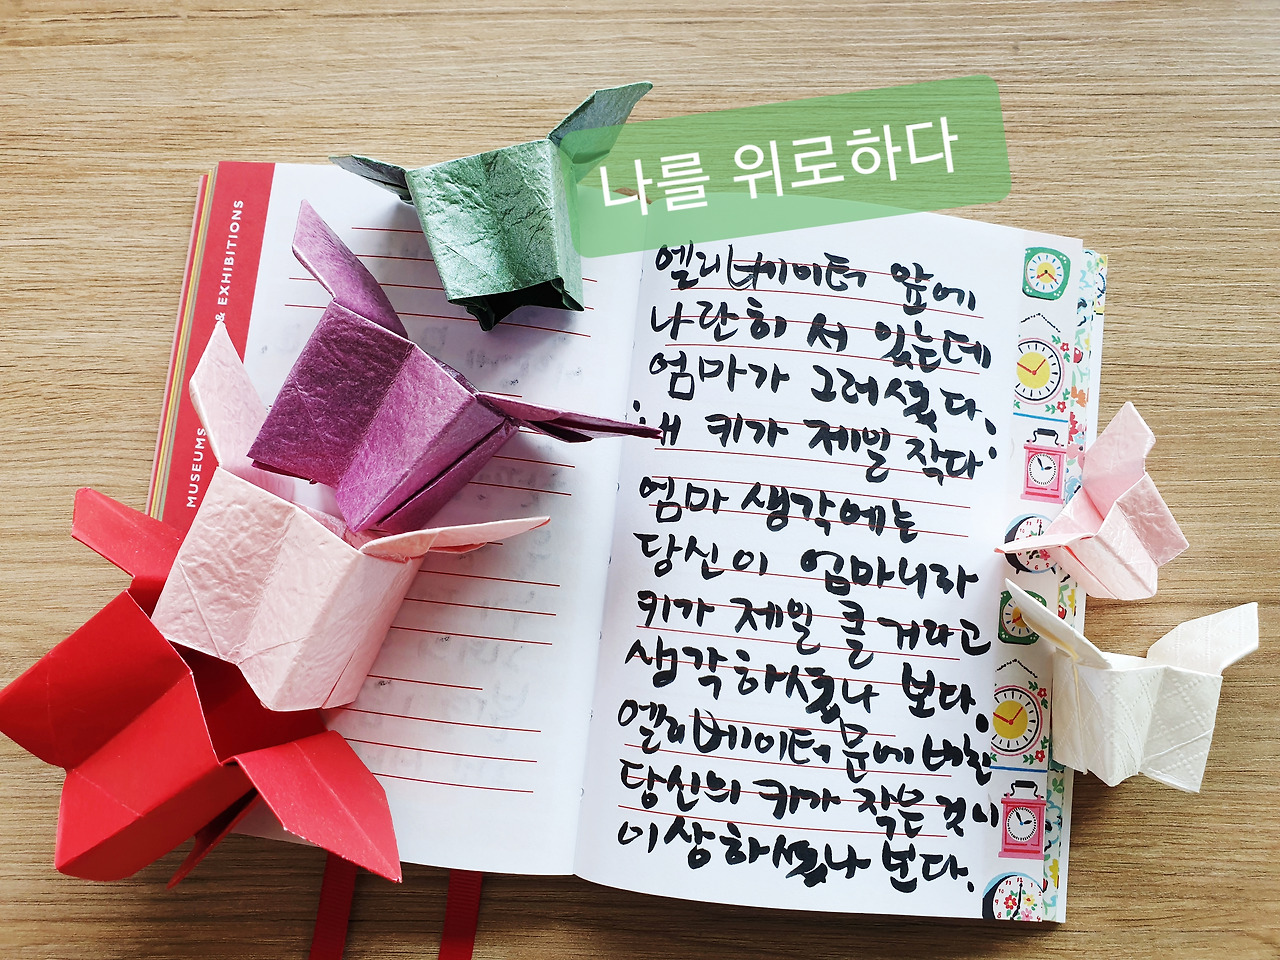 나를 위로하다
& EXHIBITIONS
MUSEUMS
엘리베이터 앞에
나란히 서 있는데
엄마가 그러셨다.
'내 키가 제일 작다'
엄마 생각에는
당신이 엄마니라
키가 제일 클 거라고
생각하셨나 보다.
엘리베이터 문에 비친
당신의 키가 작은 것이
이상하셨나 보다.